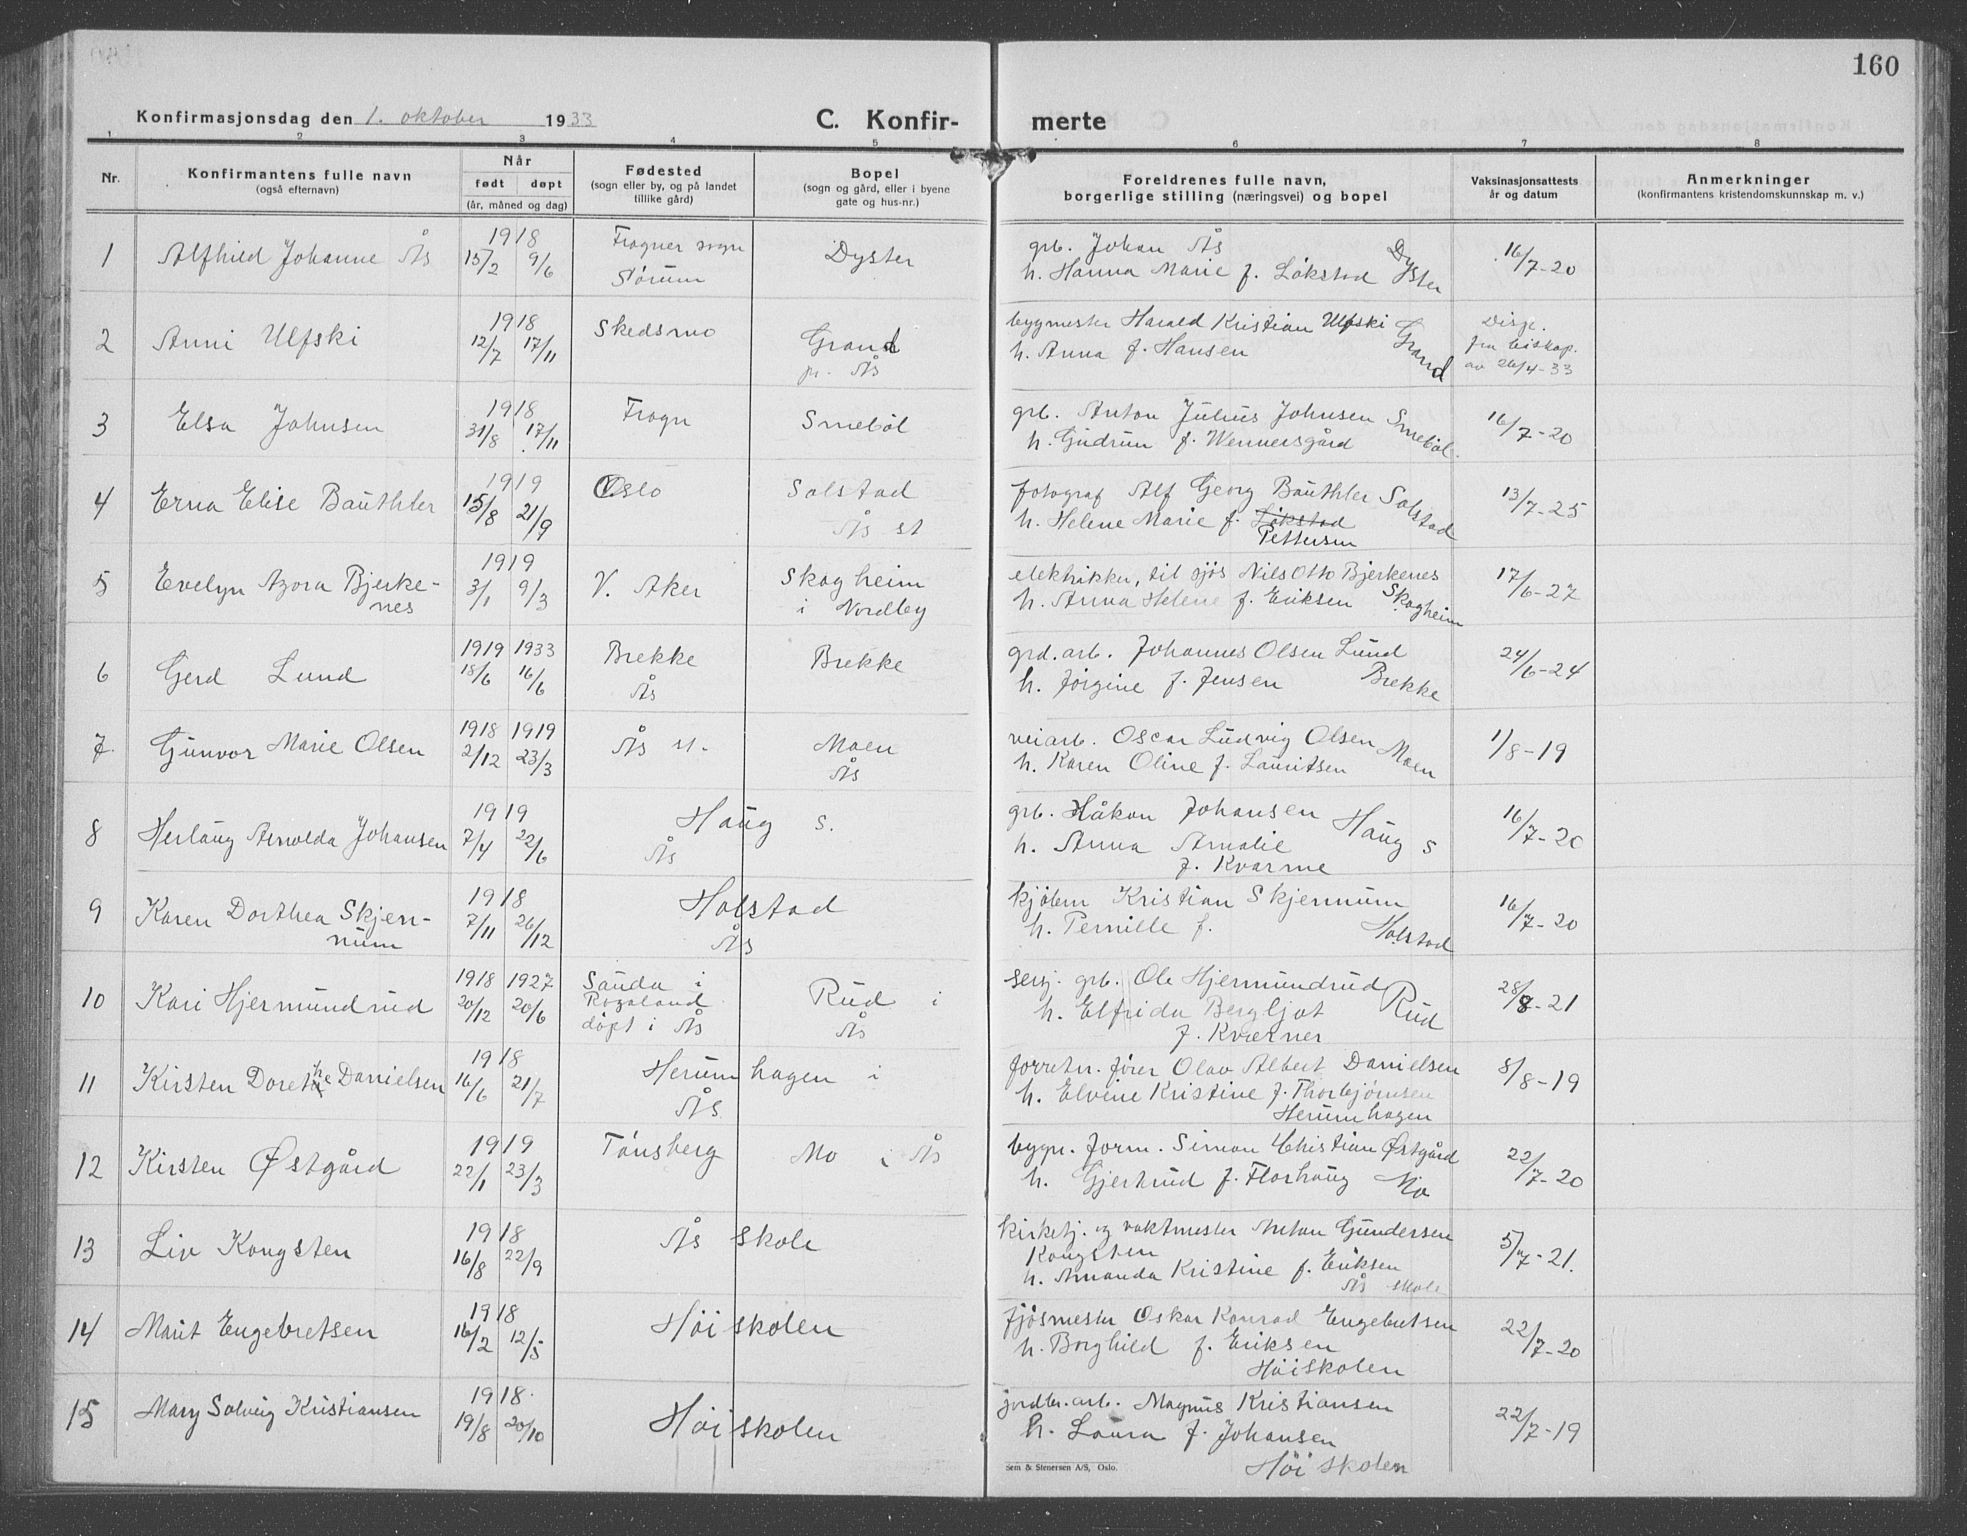 160
Konfirmasjonsdag den 1. oktober 1933
C. Konfir- merte
1 2 3 4 5 6 7 8
Nr.
Konfirmantens fulle navn
(også efternavn)
Når
født døpt
(år, måned og dag)
Fødested
(sogn eller by, og på landet
tillike gård)
Bopel
(sogn og gård, eller i byene
gate og hus-nr.)
Foreldrenes fulle navn,
borgerlige stilling (næringsvei) og bopel
Vaksinasjonsattests
år og datum
Anmerkninger
(konfirmantens kristendomskunnskap m. v.)
1 Alfhild Johanne Ås
1918
15/2 9/6
Frogner sogn
Sørum
Dyster
grb. Johan Ås
h. Hanna Marie f. Løkstad Dyster
16/7-20
2 Anni Ulfski
1918
12/7 17/11
Skedsmo
Grand
pr. Ås
bygmester Harald Kristian Ulfski
h. Anna f. Hansen Grand
Disp.
fra biskop.
av 26/4-33
3 Elsa Johnsen
1918
31/8 17/11
Frogn
Smebøl
grb. Anton Julius Johnsen Smebøl.
h. Gudrun f. Wennersgård
16/7-20
4 Erna Elise Bauthler
1919
15/8 21/9
Oslo
Solstad
Ås st
fotograf Alf Georg Bauthler Solstad
h. Helene Marie f. Løkstad
Pettersen
13/7-25
5 Evelyn Azora Bjerke-
nes
1919
3/1 9/3
V. Aker
Skogheim
i Nordby
elektriker, til sjøs Nils Otto Bjerkenes
h. Anna Helene f. Eriksen Skogheim
17/6-27
6 Gerd Lund
1919 1933
18/6 16/6
Brekke
Ås
Brekke
grd. arb. Johannes Olsen Lund
h. Jørgine f. Jensen Brekke
24/6-24
7. Gunvor Marie Olsen
1918 1919
2/12 23/3
Ås st.
Moen
Ås
veiarb. Oscar Ludvig Olsen
h. Karen Oline f. Lauritsen Moen
1/8-19
8 Herlaug Arnolda Johansen
1919
7/4 22/6
Haug s.
Ås
grb. Håkon Johansen
h. Anna Amalie Haug s
f. Kvarme
16/7-20
9 Karen Dorthea Skjer-
num
1918
7/11 26/12
Holstad
Ås
kjøbm Kristian Skjernum
h. Pernille f. Holstad
16/7-20
10 Kari Hjermundrud
1918 1927
20/12 20/6
Sauda i
Rogaland
døpt i Ås
Rud i
Ås
serj. grb. Ole Hjermundrud
h. Elfrida Bergljot Rud
f. Kværner
28/8-21
11 Kirsten Dorethe Danielsen
1918
16/6 21/7
Herumhagen i
Ås
forretn. fører Olav Albert Danielsen
h. Elvine Kristine f. Thorbjørnsen
Herumhagen
8/8-19
12 Kirsten Østgård
1919
22/1 23/3
Tønsberg
Mo i Ås
bygn. form. Simon Christian Østgård
h. Gjertrud f. Florhaug Mo
22/7-20
13 Liv Kongsten
1918
16/8 22/9
Ås skole
kirketj. og vaktmester Anton Gundersen
Kongsten
h. Amanda Kristine f. Eriksen
Ås skole
5/7-21.
14 Marit Engebretsen
1918
16/2 12/5
Høiskolen
fjøsmester Oskar Konrad Engebretsen
h. Borghild f. Eriksen
Høiskolen
22/7-20
15 Mary Solveig Kristiansen
1918.
19/8 20/10
Høiskolen
jordbr. arb. Magnus Kristiansen
h. Laura f. Johansen
Høiskolen
22/7-19
Sem & Stenersen A/S, Oslo.